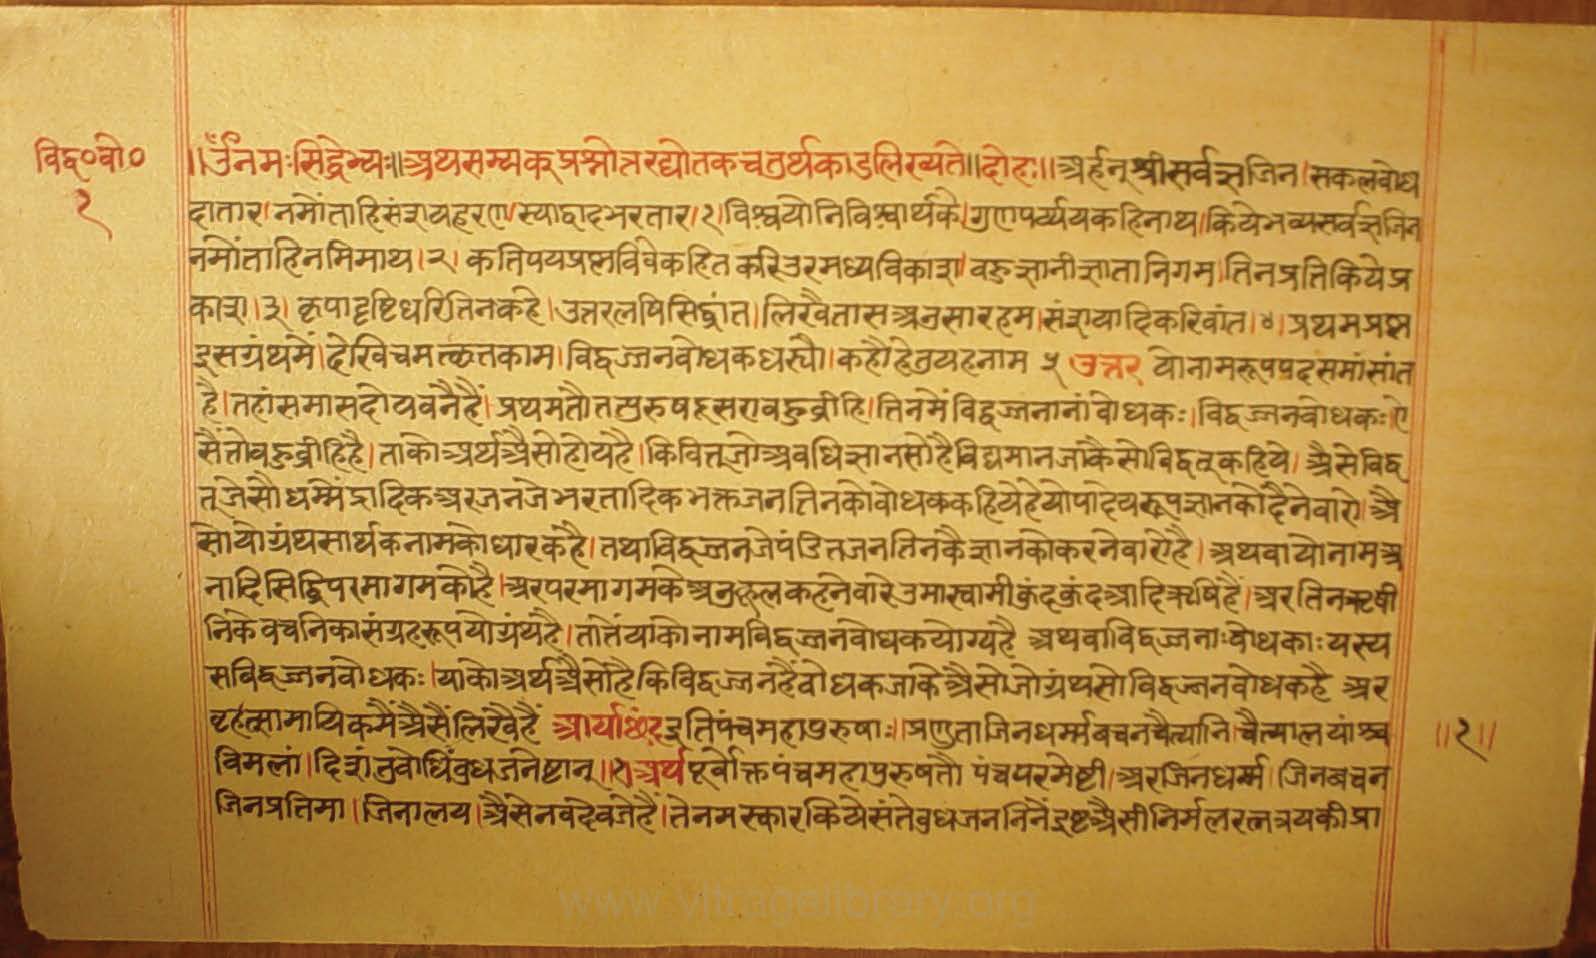 विद्व०बो०
१
॥ॐनमःसिद्धेभ्यः॥अथसम्यक्प्रश्नोत्तरद्योतकचतुर्थकांडलिख्यते॥दोहा॥अर्हन्श्रीसर्वज्ञजिन।सकलबोध
दातार।नमोंताहिसंशयहरण।स्याद्वादभरतार।१।विश्वयोनिविश्वार्थके।गुणपर्य्ययकहिनाथ।कियेभव्यसर्वज्ञजिन
नमोंताहिनमिमाथ।२।कतिपयप्रश्नविवेकहितकरिउरमध्यविकाश।बहुज्ञानीज्ञातानिगम।तिनप्रतिकियेप्र
काश।३।कृपादृष्टिधरितिनकहे।उत्तरलषिसिद्धांत।लिखैतासअनुसारहम।संशयादिकरिवांत।४।प्रथमप्रश्न
इसग्रंथमें।देखिचमत्कृतकाम।विद्वज्जनबोधकधर्यौ।कहौहेतुयहनाम ५ उत्तर योनामरूपपदसमासांत
है।तहांसमासदोयबनैहैं।प्रथमतौतत्पुरुषदूसराबहुव्रीहि।तिनमेंविद्वज्जनानांबोधकः।विद्वज्जनबोधकः।ऐ
सैंतोबहुव्रीहिहै।ताकोअर्थअैसोहोयहै।किवित्‌जोअवधिज्ञानसोहैविद्यमानजाकैसोविद्वत्‌कहिये।अैसेविद्व
त्‌जेसौधर्म्मेंद्रादिकअरजनजेभरतादिकभक्तजनतिनकोबोधककहियेहेयोपादेयरूपज्ञानकोदेनेवारो।अै
सोयोग्रंथसार्थकनामकोधारकहै।तथाविद्वज्जनजेपंडितजनतिनकैज्ञानकोकरनेवारोहै।अथवायोनामअ
नादिसिद्धिपरमागमकोहै।अरपरमागमकेअनुकूलकहनेवारेउमास्वामीकुंदकुंदआदिऋषिहैं।अरतिनऋषी
निकेवचनिकासंग्रहरूपयोग्रंथहै।तातेंयाकोनामविद्वज्जनबोधकयोग्यहै अथवाविद्वज्जनाःबोधकाःयस्य
सविद्वज्जनबोधकः।याकोअर्थअैसोहैकिविद्वज्जनहैंबोधकजाकेअैसोजोग्रंथसोविद्वज्जनबोधकहै अर
वृहत्सामायिकमैंअैसैंलिखैहैं आर्याछंद इतिपंचमहापुरुषाः।प्रणुताजिनधर्म्मबचनचैत्यानि।चैत्यालयांश्च
॥१॥
विमलां।दिशंतुबोधिंबुधजनेष्टान्॥१अर्थपूर्वोक्तपंचमहापुरुषतौ पंचपरमेष्टी।अरजिनधर्म्म।जिनबचन
जिनप्रतिमा।जिनालय।अैसेनवदेवजेहैं।तेनमस्कारकियेसंतेबुधजननिनैंइष्टअैसीनिर्मलरत्नत्रयकीप्रा
www.vitragelibrary.org